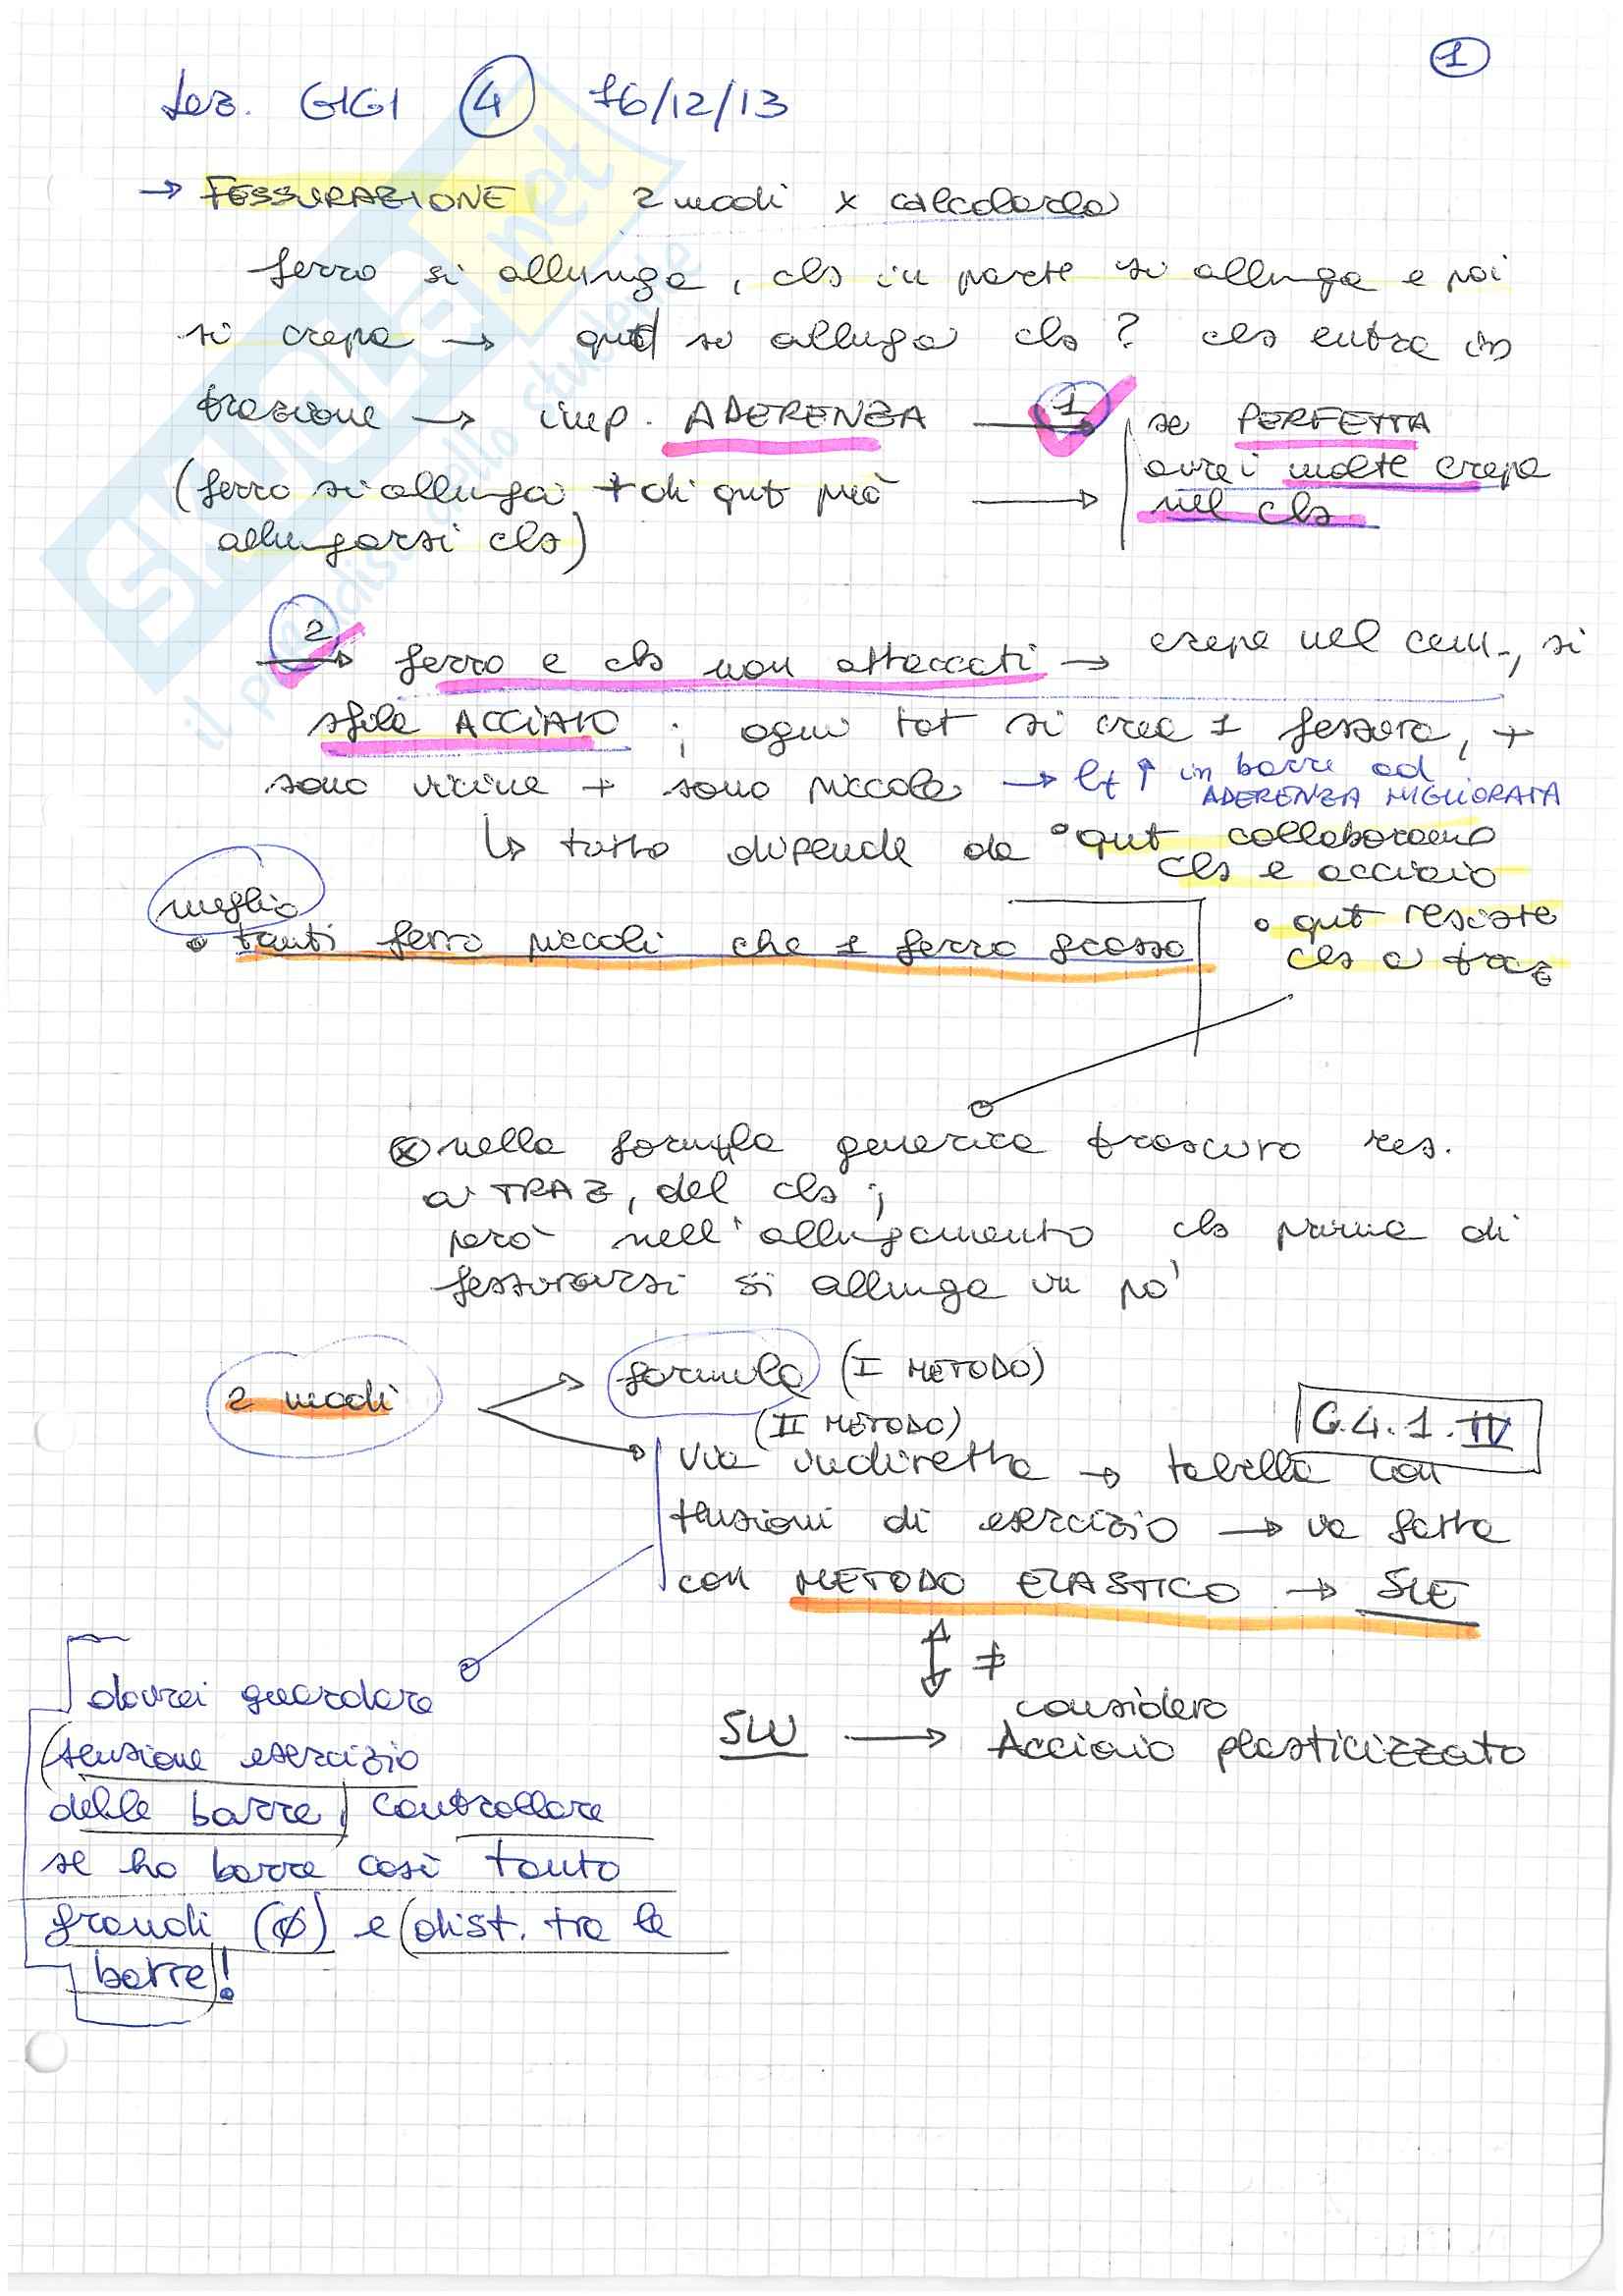 1
Lez. GIGI 4 16/12/13
→ FESSURAZIONE 2 modi x calcolarla
ferro si allunga, cls in parte si allunga e poi
si crepa → qnt si allunga cls? cls entra in
trazione → imp. ADERENZA → 1 se PERFETTA
avrei molte crepe
(ferro si allunga + di qnt può → nel cls
allungarsi cls)
2 → ferro e cls non attaccati → crepe nel cem., si
sfila ACCIAIO ; ogni tot si crea 1 fessura, +
sono vicine + sono piccole → in barre ad
ADERENZA MIGLIORATA
↳ tutto dipende da • qnt collaborano
cls e acciaio
meglio
• tanti ferro piccoli che 1 ferro grosso
• qnt resiste
cls a traz
⊗ nella formula generica trascuro res.
a TRAZ, del cls ;
però nell'allungamento cls prima di
fessurarsi si allunga un pò
2 modi → formula (I METODO)
(II METODO)
C.4.1.IV
via indiretta → tabella con
tensioni di esercizio → va fatta
con METODO ELASTICO → SLE
≠
SLU → considero
Acciaio plasticizzato
dovrei guardare
(tensione esercizio
delle barre) controllare
se ho barre così tanto
grandi (ø) e (dist. tra le
barre)!
SKUOLA.net
il paradiso dello studente